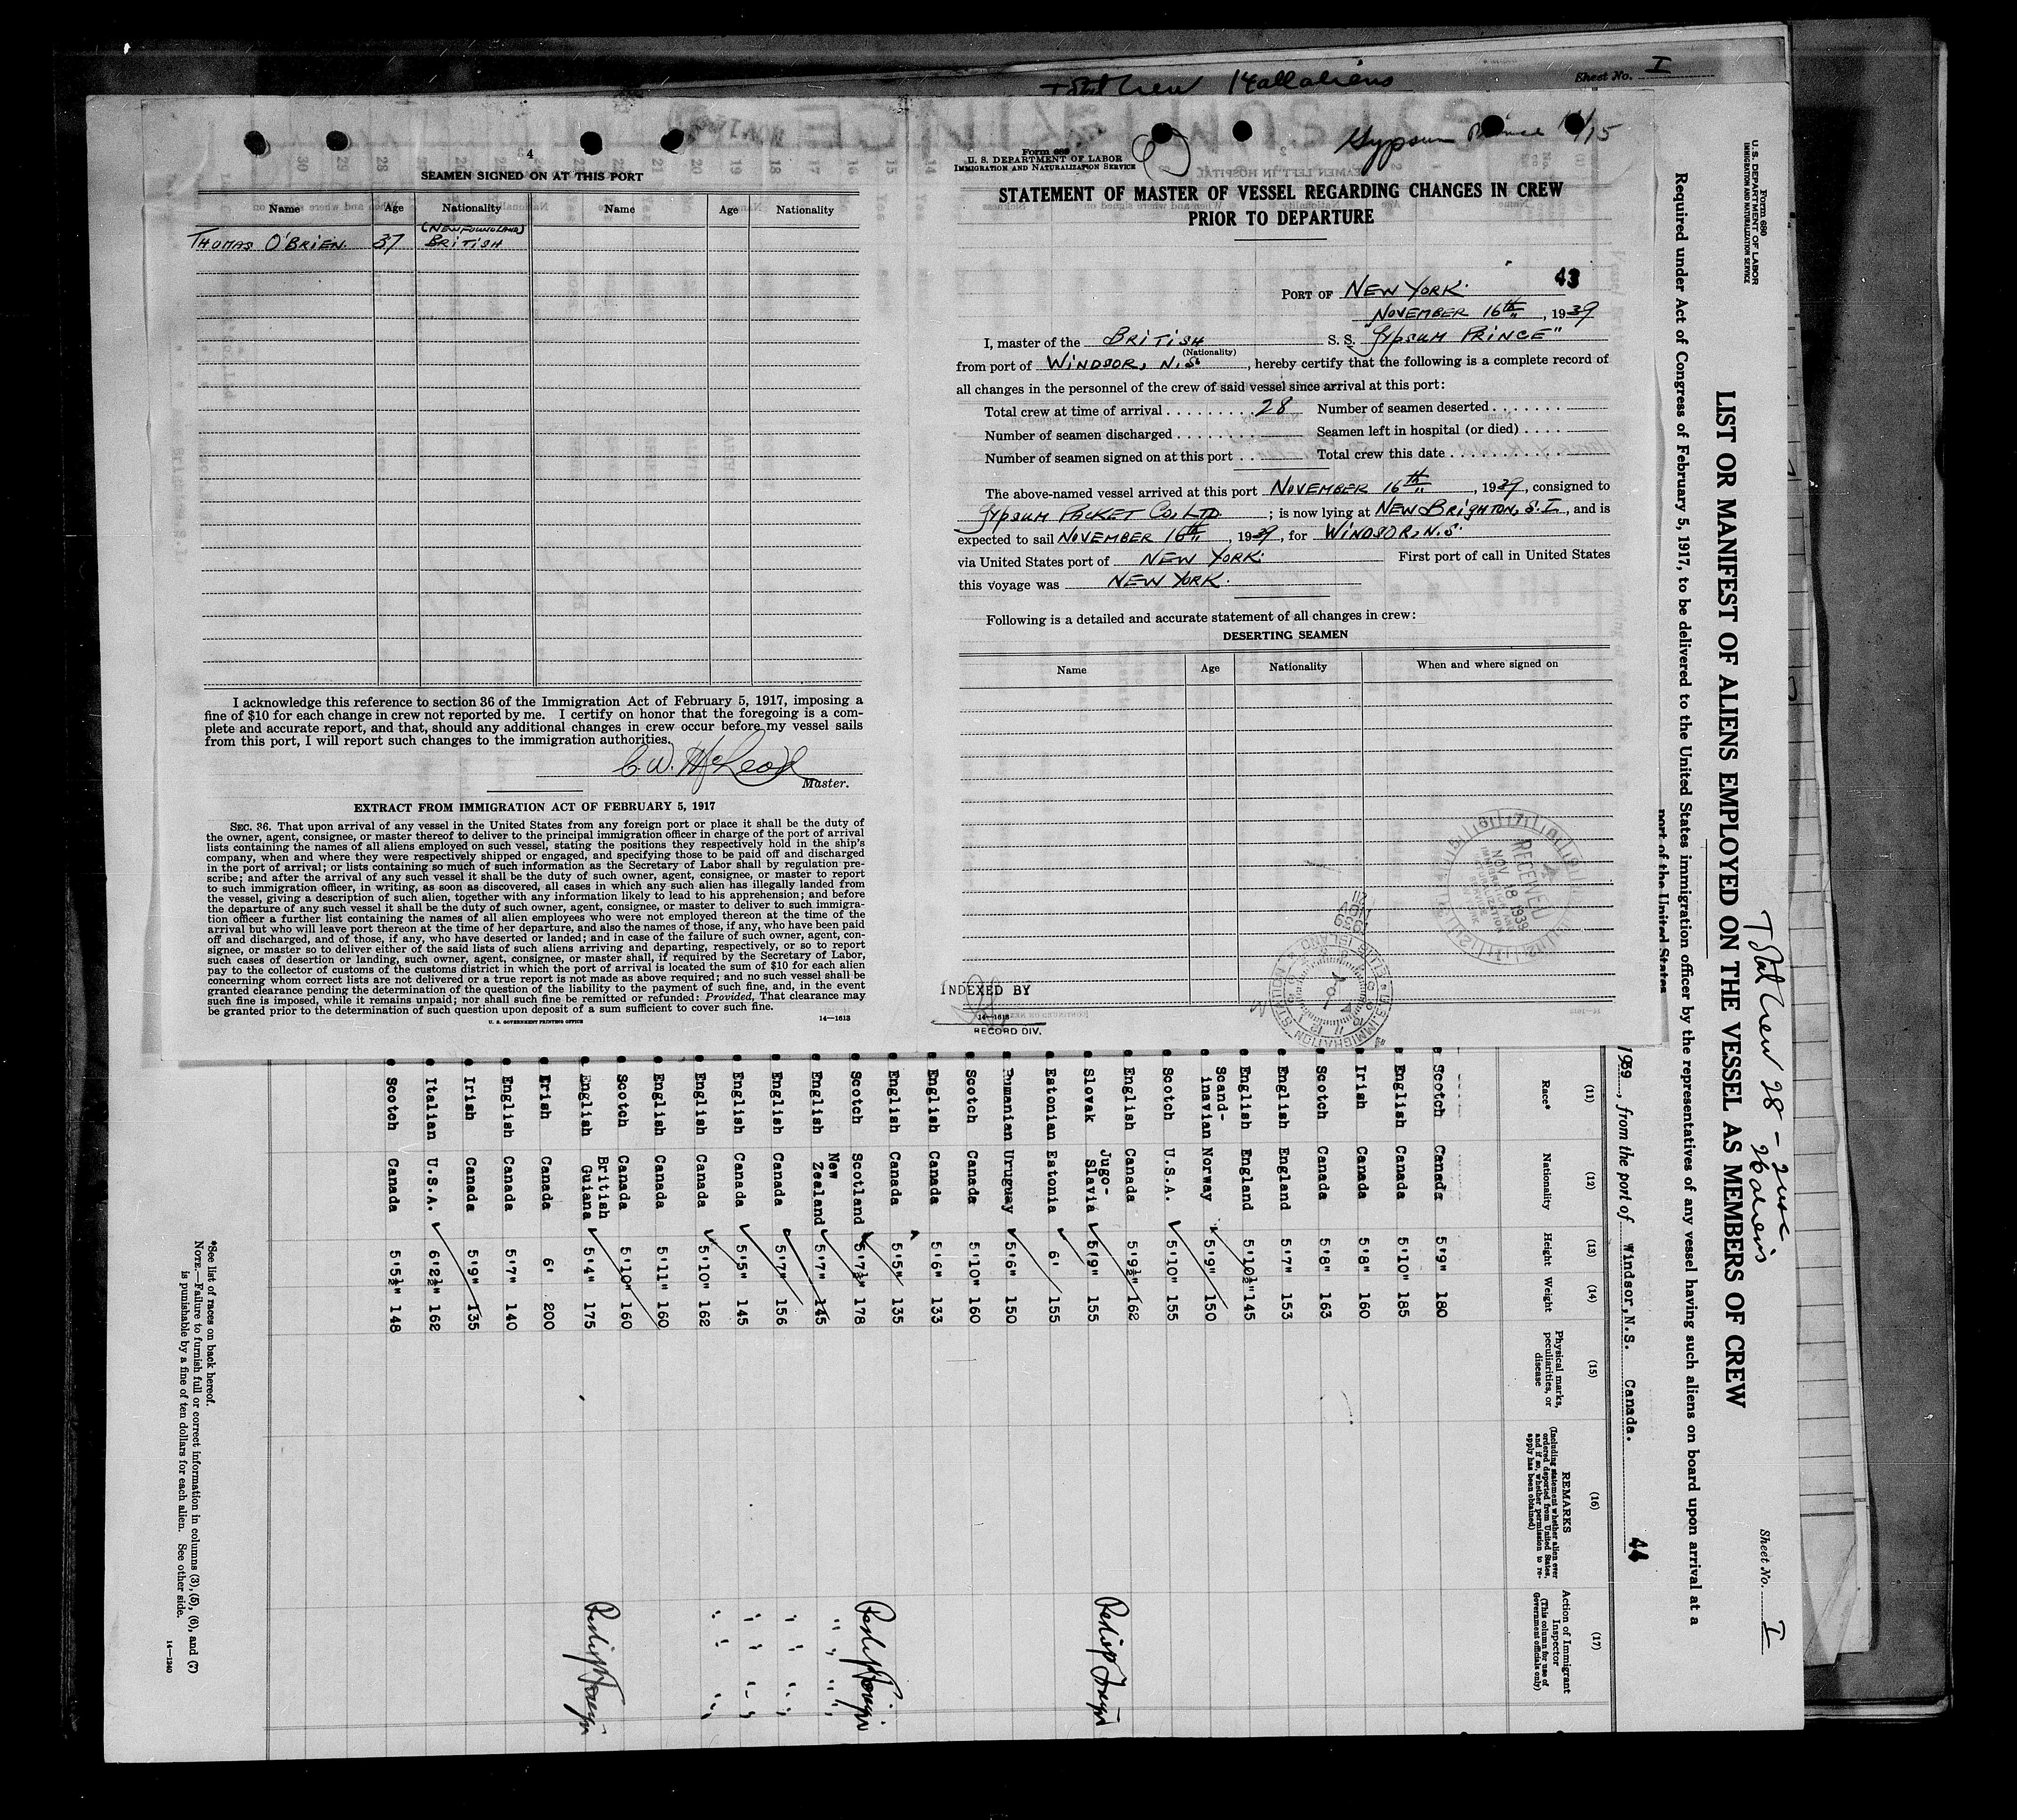 Total Crew 14 all aliens
Sheet No. I
4
SEAMEN SIGNED ON AT THIS PORT
Name Age Nationality Name Age Nationality
THOMAS O'BRIEN. 37 (NEWFOUNDLAND) BRITISH
I acknowledge this reference to section 36 of the Immigration Act of February 5, 1917, imposing a
fine of $10 for each change in crew not reported by me. I certify on honor that the foregoing is a com-
plete and accurate report, and that, should any additional changes in crew occur before my vessel sails
from this port, I will report such changes to the immigration authorities.
C. W. McLeod
Master.
EXTRACT FROM IMMIGRATION ACT OF FEBRUARY 5, 1917
SEC. 36. That upon arrival of any vessel in the United States from any foreign port or place it shall be the duty of
the owner, agent, consignee, or master thereof to deliver to the principal immigration officer in charge of the port of arrival
lists containing the names of all aliens employed on such vessel, stating the positions they respectively hold in the ship's
company, when and where they were respectively shipped or engaged, and specifying those to be paid off and discharged
in the port of arrival; or lists containing so much of such information as the Secretary of Labor shall by regulation pre-
scribe; and after the arrival of any such vessel it shall be the duty of such owner, agent, consignee, or master to report
to such immigration officer, in writing, as soon as discovered, all cases in which any such alien has illegally landed from
the vessel, giving a description of such alien, together with any information likely to lead to his apprehension; and before
the departure of any such vessel it shall be the duty of such owner, agent, consignee, or master to deliver to such immigra-
tion officer a further list containing the names of all alien employees who were not employed thereon at the time of the
arrival but who will leave port thereon at the time of her departure, and also the names of those, if any, who have been paid
off and discharged, and of those, if any, who have deserted or landed; and in case of the failure of such owner, agent, con-
signee, or master so to deliver either of the said lists of such aliens arriving and departing, respectively, or so to report
such cases of desertion or landing, such owner, agent, consignee, or master shall, if required by the Secretary of Labor,
pay to the collector of customs of the customs district in which the port of arrival is located the sum of $10 for each alien
concerning whom correct lists are not delivered or a true report is not made as above required; and no such vessel shall be
granted clearance pending the determination of the question of the liability to the payment of such fine, and, in the event
such fine is imposed, while it remains unpaid; nor shall such fine be remitted or refunded: Provided, That clearance may
be granted prior to the determination of such question upon deposit of a sum sufficient to cover such fine.
U. S. GOVERNMENT PRINTING OFFICE 14—1613
Form 689
U. S. DEPARTMENT OF LABOR
IMMIGRATION AND NATURALIZATION SERVICE
Gypsum Prince 11/15
STATEMENT OF MASTER OF VESSEL REGARDING CHANGES IN CREW
PRIOR TO DEPARTURE
43
PORT OF NEW YORK.
NOVEMBER 16th, 1939
I, master of the BRITISH S. S. "GYPSUM PRINCE"
(Nationality)
from port of WINDSOR, N.S., hereby certify that the following is a complete record of
all changes in the personnel of the crew of said vessel since arrival at this port:
Total crew at time of arrival . . . . . . . . . 28 Number of seamen deserted . . . . . . . .
Number of seamen discharged . . . . . . . . Seamen left in hospital (or died) . . . .
Number of seamen signed on at this port . . Total crew this date . . . . . . . . . . . .
The above-named vessel arrived at this port NOVEMBER 16th, 1939, consigned to
GYPSUM PACKET CO, LTD. ; is now lying at NEW BRIGHTON, S.I., and is
expected to sail NOVEMBER 16th, 1939, for WINDSOR, N.S.
via United States port of NEW YORK. First port of call in United States
this voyage was NEW YORK.
Following is a detailed and accurate statement of all changes in crew:
DESERTING SEAMEN
Name Age Nationality When and where signed on
RECEIVED
NOV 18 1939
IMMIGRATION AND
NATURALIZATION
SERVICE
21
NOV
1939
U.S. IMMIGRATION STATION
ELLIS ISLAND
INDEXED BY
14—1613
RECORD DIV.
Form 680
U. S. DEPARTMENT OF LABOR
IMMIGRATION AND NATURALIZATION SERVICE
Total Crew 28 - 2 usc
26 aliens
Sheet No. I
LIST OR MANIFEST OF ALIENS EMPLOYED ON THE VESSEL AS MEMBERS OF CREW
Required under Act of Congress of February 5, 1917, to be delivered to the United States immigration officer by the representatives of any vessel having such aliens on board upon arrival at a
port of the United States
1939, from the port of Windsor, N.S. Canada.
44
(11) (12) (13) (14) (15) (16) (17)
Race* Nationality Height Weight Physical marks, peculiarities, or disease
REMARKS (Including statement whether alien ever ordered deported from United States, and if so, whether permission to re-apply has been obtained)
Action of Immigrant Inspector (This column for use of Government officials only)
Scotch Canada 5'9" 180
English Canada 5'10" 185
Irish Canada 5'8" 160
Scotch Canada 5'8" 163
English England 5'7" 153
English England 5'10½" 145
Scand-inavian Norway 5'9" 150
Scotch U.S.A. 5'10" 155
English Canada 5'9½" 162
Slovak Jugo-Slavia 5'9" 155
Estonian Estonia 6' 155
Rumanian Uruguay 5'6" 150
Scotch Canada 5'10" 160
English Canada 5'6" 133
English Canada 5'5" 135
Scotch Scotland 5'7½" 178
English New Zealand 5'7" 145
English Canada 5'7" 156
English Canada 5'5" 145
English Canada 5'10" 162
English Canada 5'11" 160
Scotch Canada 5'10" 160
English British Guiana 5'4" 175
Irish Canada 6' 200
English Canada 5'7" 140
Irish Canada 5'9" 135
Italian U.S.A. 6'2½" 162
Scotch Canada 5'5½" 148
*See list of races on back hereof.
NOTE.—Failure to furnish full or correct information in columns (3), (5), (6), and (7)
is punishable by a fine of ten dollars for each alien. See other side.
14—1240